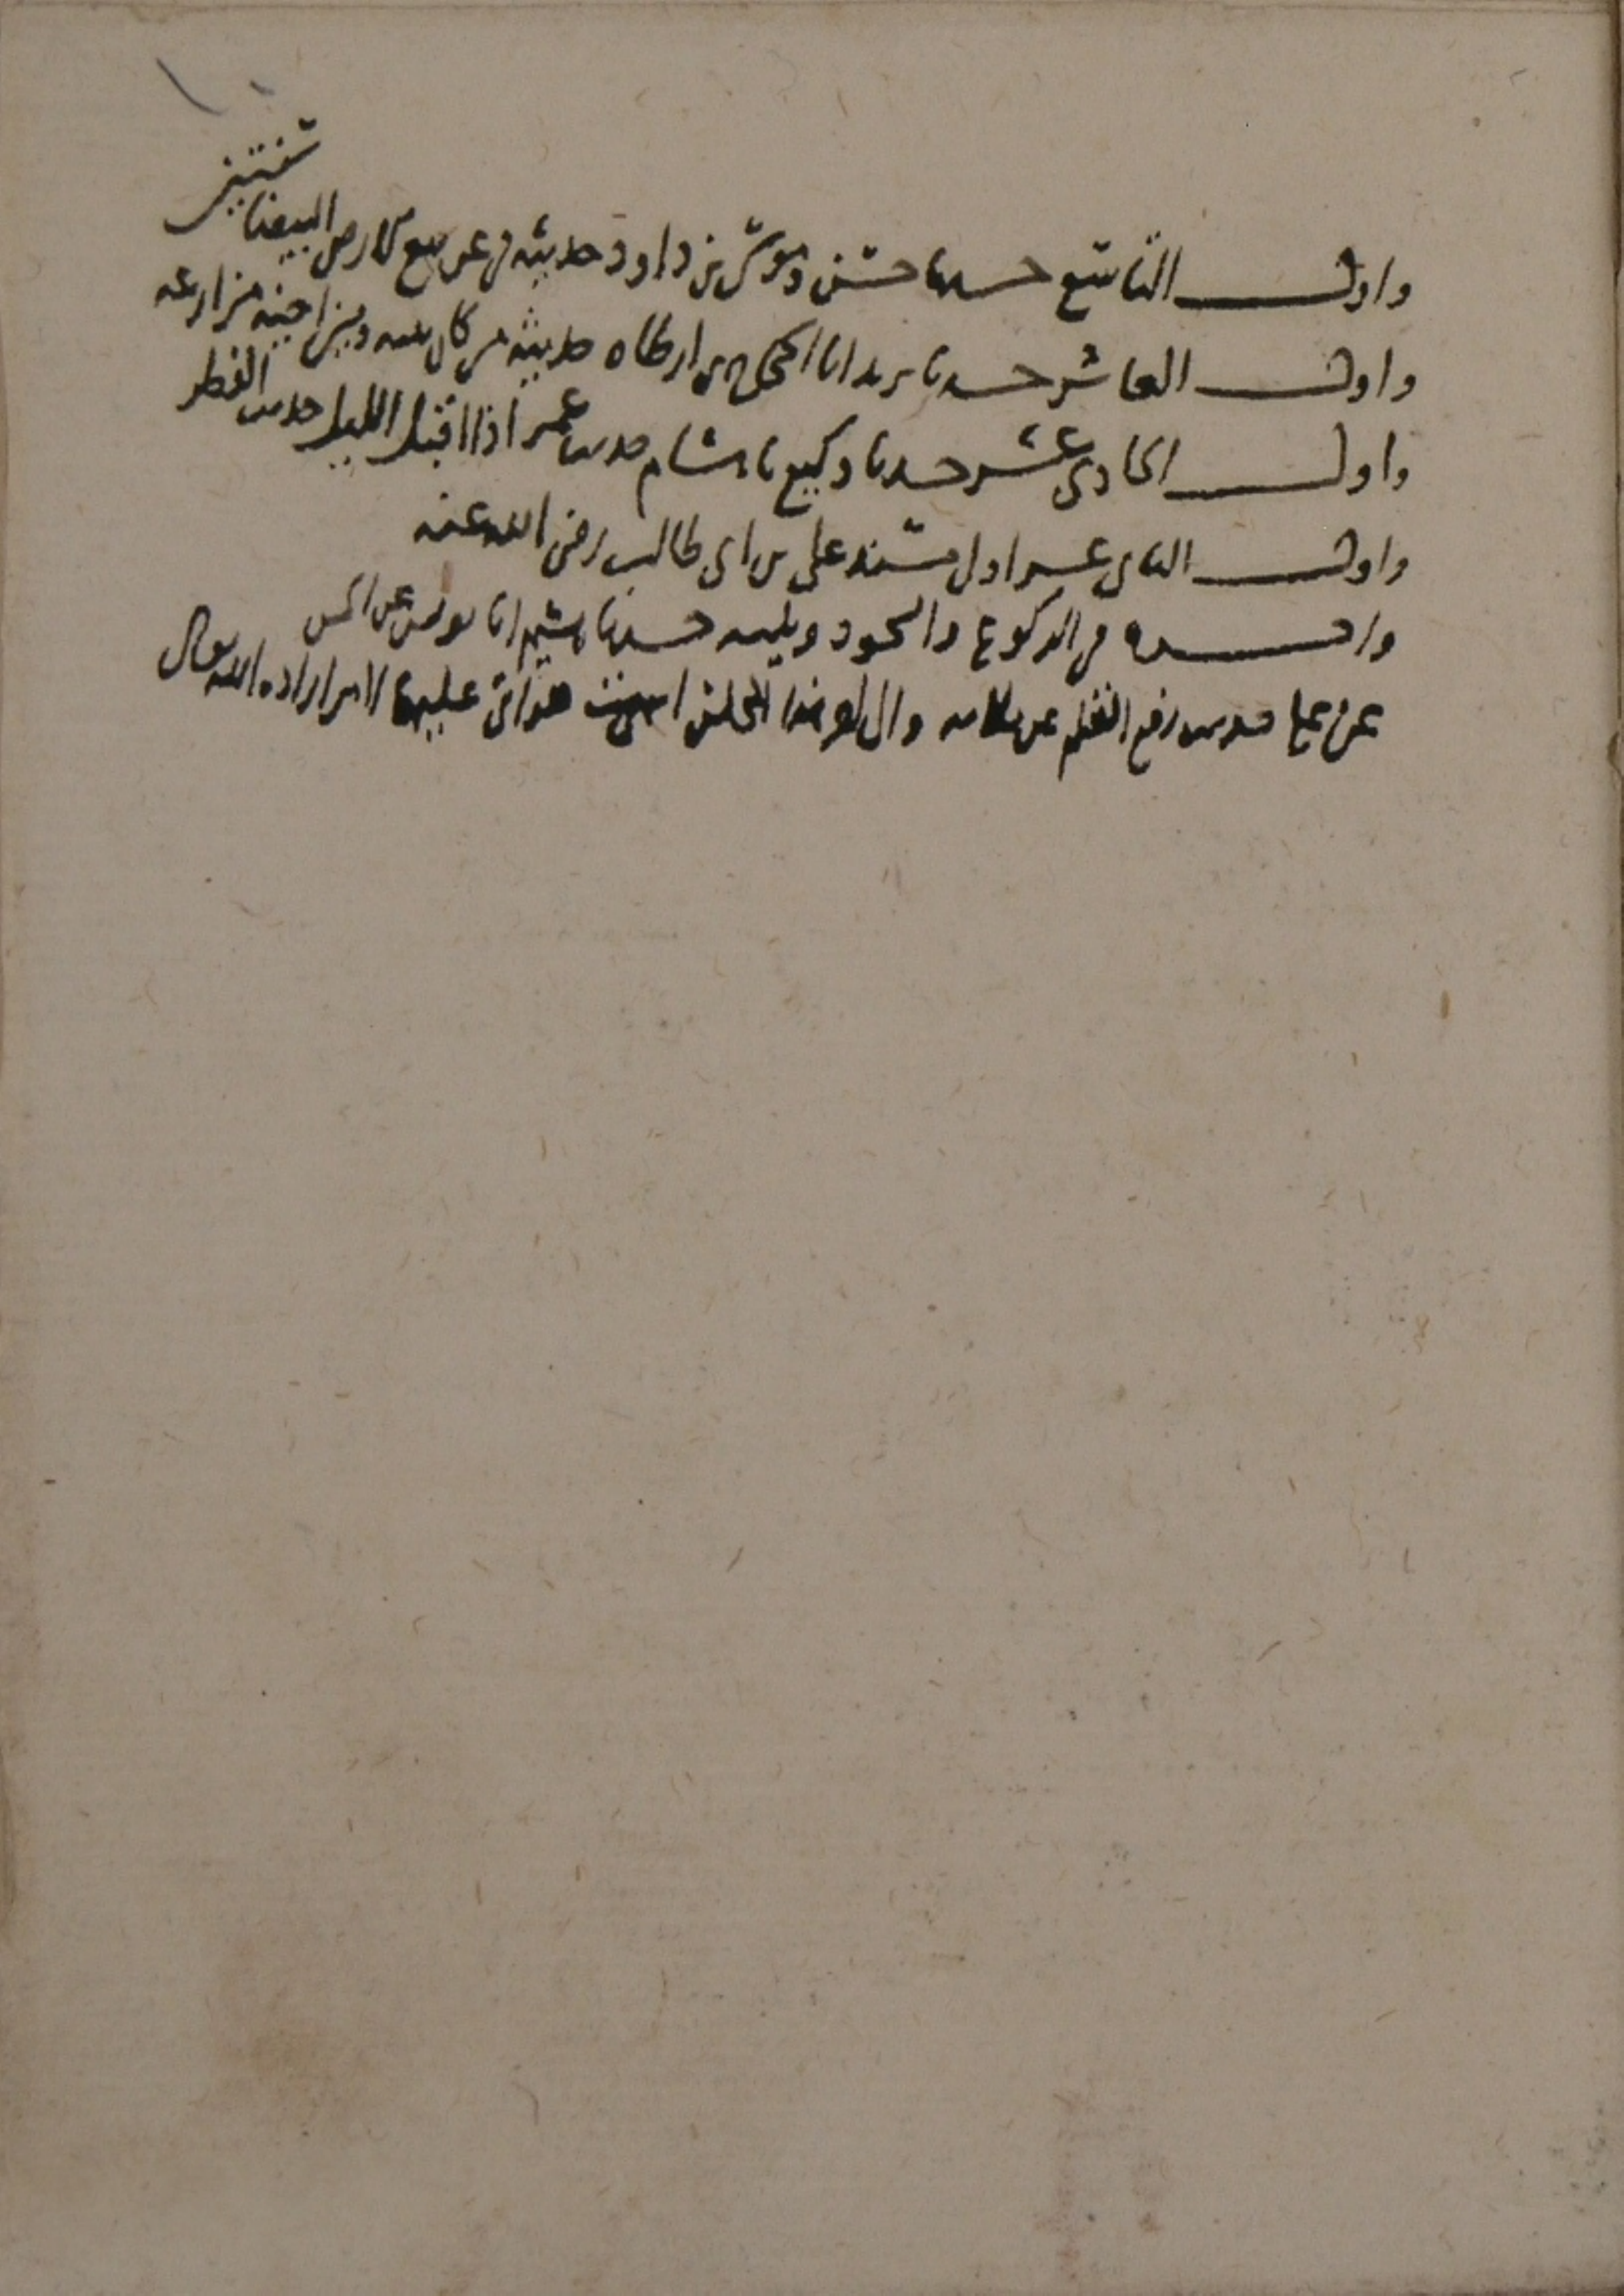 واول التاسع حدثنا حسن وموسى بن داود حديثه نهى عن بيع الارض البيضا سنتين
واول العاشر حدثنا يزيد انا الحجاج بن ارطاه حديثه من كان بينه وبين اخيه مزارعه
واول الحادى عشر حدثنا وكيع نا هشام حديث عمر اذا اقبل الليل حديث الفطر
واول الثانى عشر اول مسند على بن ابى طالب رضى الله عنه
واخره فى الركوع والسجود ويليه حدثنا هشيم انا يونس عن الحسن
عن على حديث رفع القلم عن ثلاثه وال هذا المجلس عليها الامر اراده الله